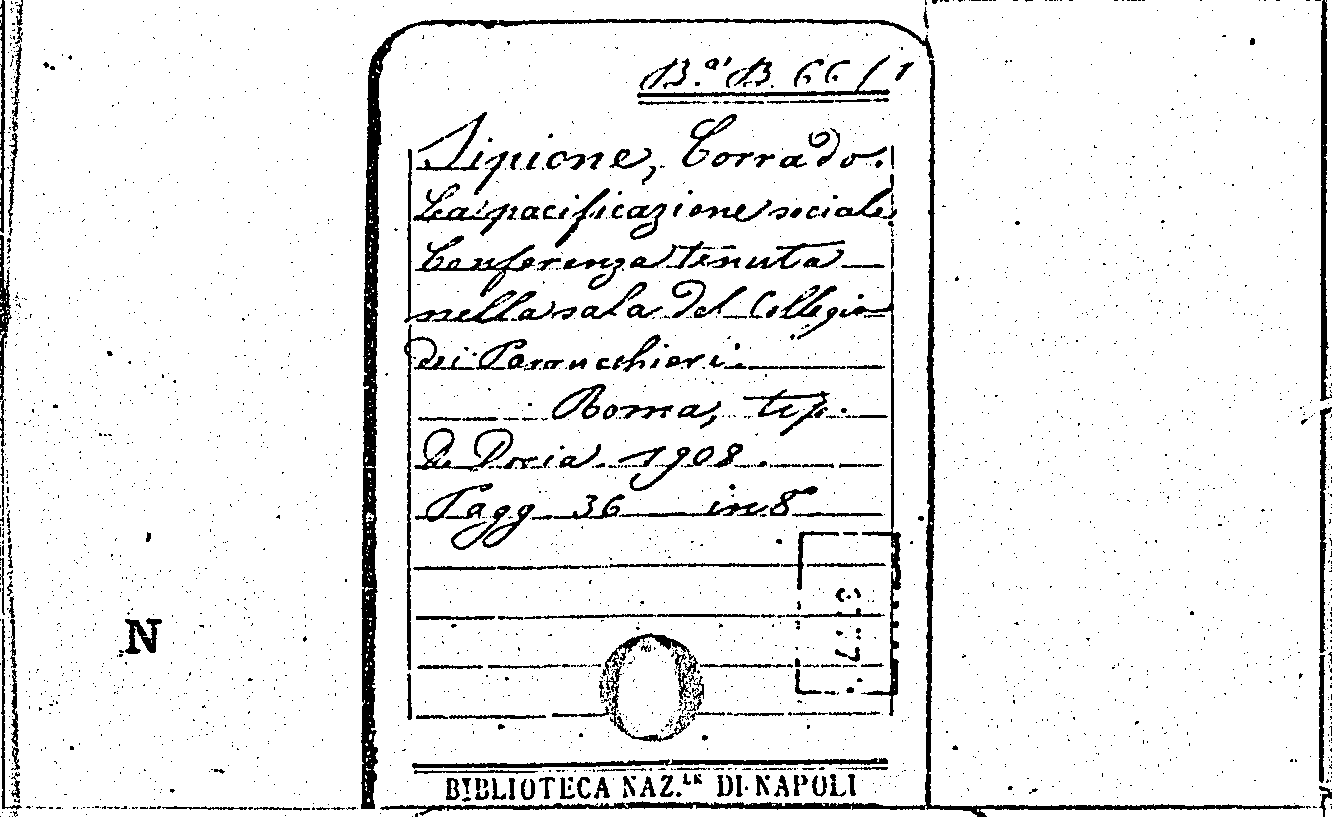 B.ᵃ B. 66/1
Sipione, Corrado.
La pacificazione sociale.
Conferenza tenuta
nella sala del Collegio
dei Parrucchieri.
Roma, tip.
De Doria. 1908.
Pagg. 36 in 8°
N
BIBLIOTECA NAZ.LE DI NAPOLI